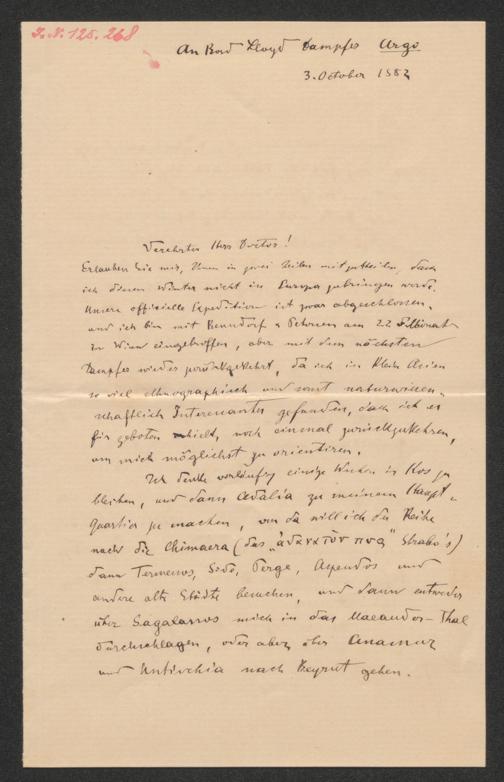 I.N. 125.268
An Bord Lloyd Dampfer Argo
3. October 1882
Verehrter Herr Doctor!
Erlauben Sie mir, Ihnen in zwei Zeilen mitzutheilen, dass
ich diesen Winter nicht in Europa zubringen werde.
Unsere officielle Expedition ist zwar abgeschlossen,
und ich bin mit Benndorf u Petersen am 22
in Wien eingetroffen, aber mit dem nächsten
Dampfer wieder zurückgekehrt, da ich in Klein Asien
so viel ethnographisch und sonst naturwissen-
schaftlich Interessantes gefunden, dass ich es
für geboten hielt, noch einmal zurückzukehren,
um mich möglichst zu orientiren.
Ich denke vorläufig einige Wochen in Kos zu
bleiben, und dann Adalia zu meinem Haupt-
quartier zu machen, von da will ich die Reihe
nach die Chimaera (das "ἀθανατὸν πυρ" Strabo's)
dann Termessos, Side, Perge, Aspendos und
andere alte Städte besuchen, und dann entweder
über Sagalassos mich in das Maeander-Thal
durchschlagen, oder aber über Anamur
und Antiochia nach Beyrut gehen.